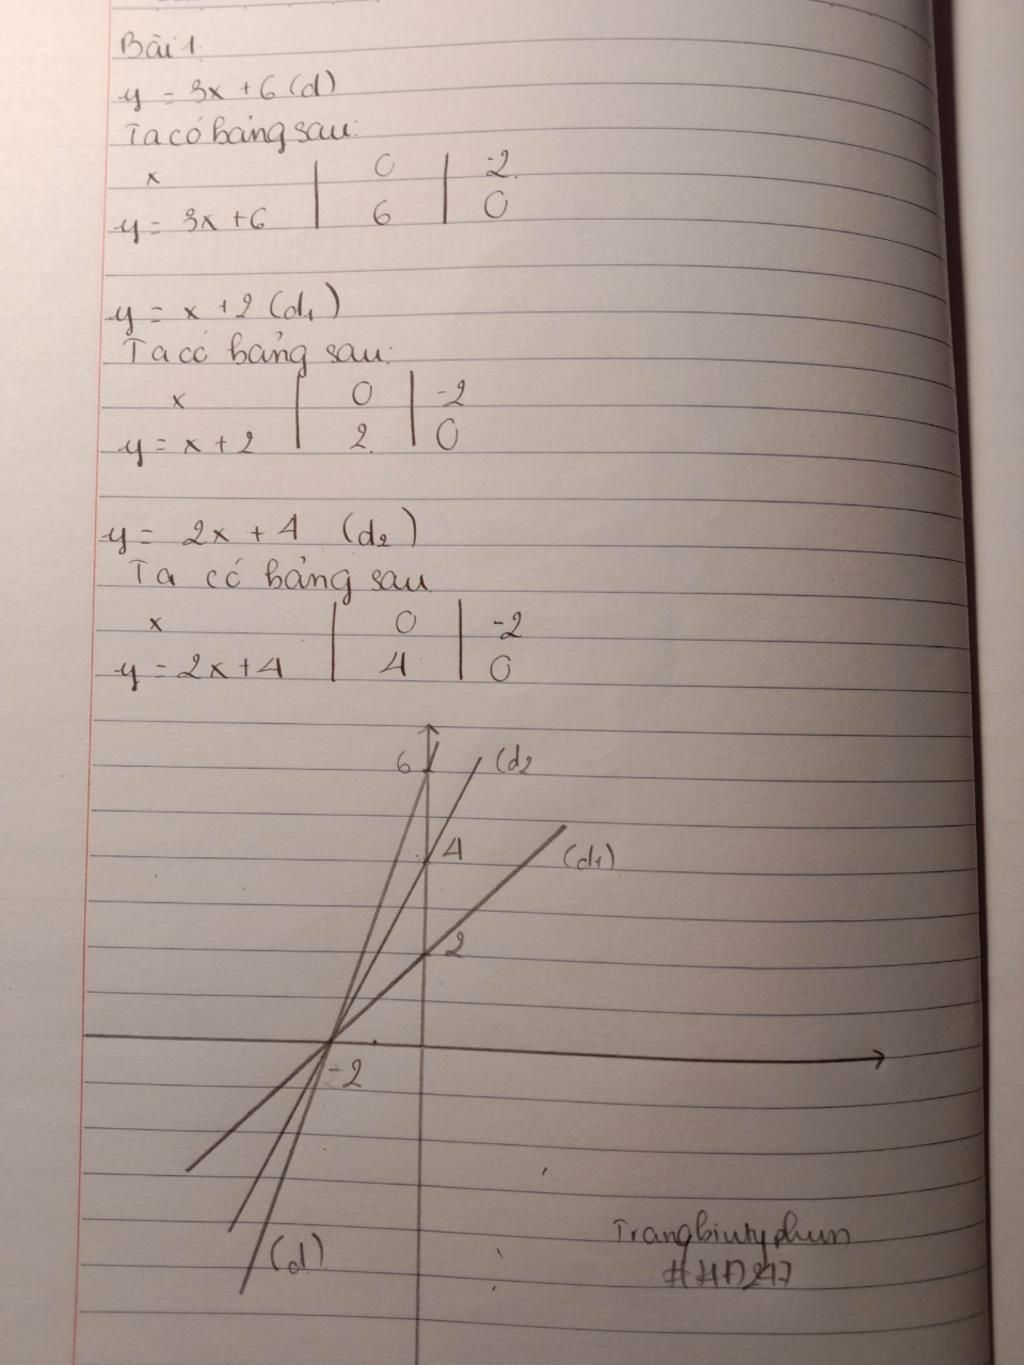 Bài 1.
y = 3x + 6 (d)
Ta có bảng sau:
x | 0 | -2
y = 3x + 6 | 6 | 0
y = x + 2 (d₁)
Ta có bảng sau:
x | 0 | -2
y = x + 2 | 2 | 0
y = 2x + 4 (d₂)
Ta có bảng sau
x | 0 | -2
y = 2x + 4 | 4 | 0
6
(d₂
4
(d₁)
2
-2
(d)
Trangbiutyphun